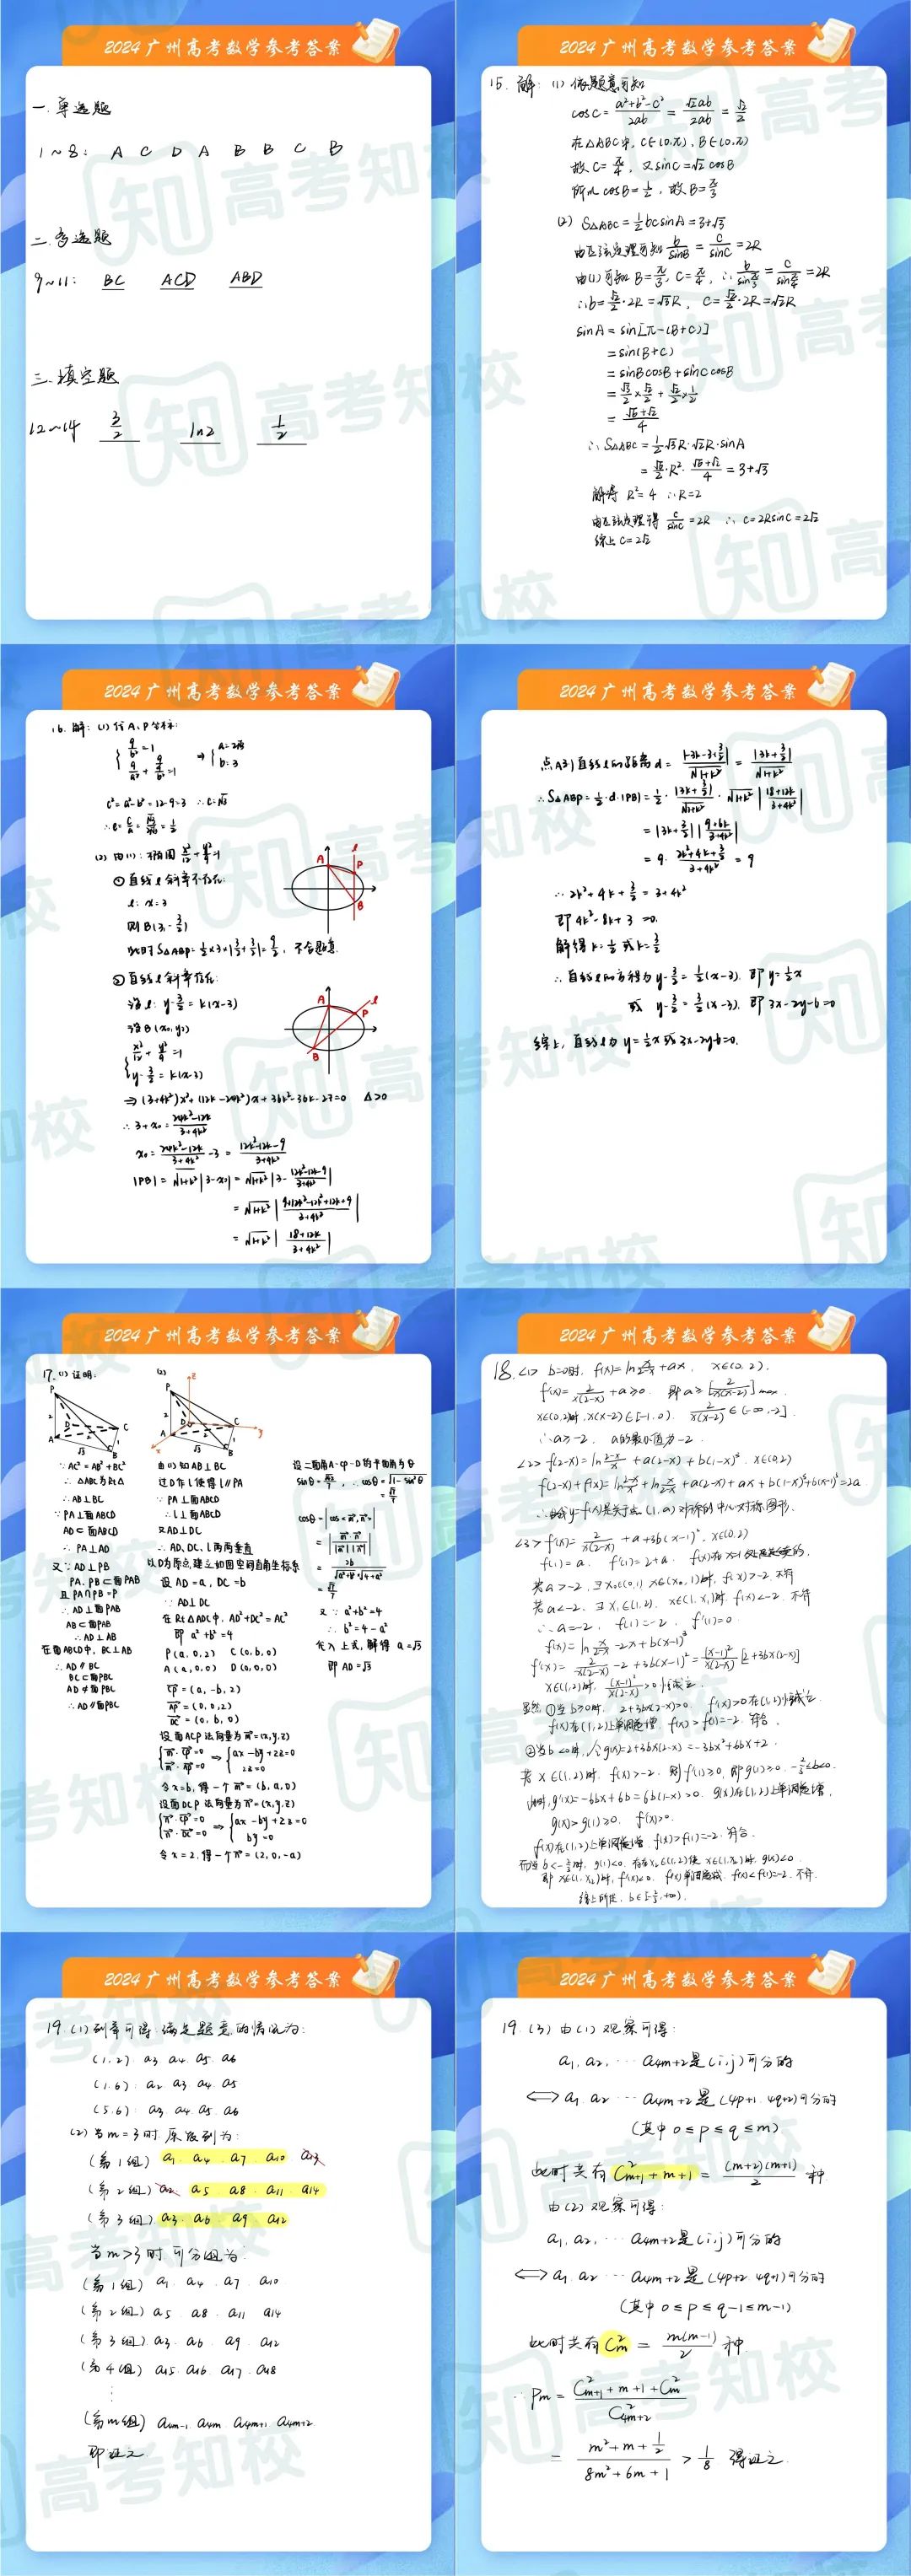 2024广州高考数学参考答案
一. 单选题
1~8: A C D A B B C B
二. 多选题
9~11: BC ACD ABD
三. 填空题
12~14 3/2 ln2 1/2
2024广州高考数学参考答案
15. 解: (1) 依题意可知
cosC = (a²+b²-c²)/2ab = √2ab/2ab = √2/2
在△ABC中, C∈(0,π), B∈(0,π)
故 C=π/4, 又sinC=√2cosB
所以 cosB=1/2, 故B=π/3
(2) S△ABC=1/2bcsinA=3+√3
由正弦定理可知 b/sinB = c/sinC = 2R
由(1)可知 B=π/3, C=π/4, ∴ b/sinπ/3 = c/sinπ/4 = 2R
∴b=√3/2·2R=√3R, c=√2/2·2R=√2R
sinA = sin[π-(B+C)]
= sin(B+C)
= sinBcosB + sinCcosB
= √3/2×√2/2 + √2/2×1/2
= (√6+√2)/4
∴ S△ABC = 1/2·√3R·√2R·sinA
= √6/2·R²·(√6+√2)/4 = 3+√3
解得 R²=4 ∴R=2
由正弦定理得 c/sinC=2R ∴ c=2RsinC=2√2
综上 c=2√2
2024广州高考数学参考答案
16. 解: (1) 代A、P坐标:
{ 9/b²=1 ⇒ { a=2√3
{ 9/a² + (9/4)/b² =1 { b=3
c²=a²-b²=12-9=3 ∴c=√3
∴e=c/a=√3/2√3=1/2
(2) 由(1): 椭圆 x²/12+y²/9=1
① 直线l斜率不存在:
l: x=3
则B(3,-3/2)
此时S△ABP=1/2×3×|3/2+3/2|=9/2, 不合题意.
A l P B
② 直线l斜率存在:
设l: y-3/2=k(x-3)
设B(x₀,y₀)
{ x²/12+y²/9=1
{ y-3/2=k(x-3)
A P l B
⇒(3+4k²)x²+(12k-24k²)x+36k²-36k-27=0 △>0
∴3+x₀=(24k²-12k)/(3+4k²)
x₀=(24k²-12k)/(3+4k²)-3=(12k²-12k-9)/(3+4k²)
|PB|=√1+k²|3-x₀|=√1+k²|3-(12k²-12k-9)/(3+4k²)|
=√1+k²|(9+12k²-12k²+12k+9)/(3+4k²)|
=√1+k²|(18+12k)/(3+4k²)|
2024广州高考数学参考答案
点A到直线l的距离d=|-3k-3+3/2|/√1+k²=|3k+3/2|/√1+k²
∴S△ABP=1/2·d·|PB|=1/2·|3k+3/2|/√1+k²·√1+k²|(18+12k)/(3+4k²)|
=|3k+3/2||(9+6k)/(3+4k²)|
=9·(2k²+4k+3/2)/(3+4k²)=9
∴2k²+4k+3/2=3+4k²
即4k²-8k+3=0
解得k=1/2或k=3/2
∴直线l的方程为y-3/2=1/2(x-3), 即y=1/2x
或 y-3/2=3/2(x-3), 即3x-2y-6=0
综上, 直线l为y=1/2x或3x-2y-6=0.
2024广州高考数学参考答案
17. (1) 证明:
∵AC²=AB²+BC²
∴△ABC为Rt△
∴AB⊥BC
∵PA⊥面ABCD
AD⊂面ABCD
∴PA⊥AD
又∵AD⊥PB
PA, PB⊂面PAB
且PA∩PB=P
∴AD⊥面PAB
AB⊂面PAB
∴AD⊥AB
在面ABCD中, BC⊥AB
∴AD∥BC
BC⊂面PBC
AD⊄面PBC
∴AD∥面PBC
(2)
由(1)知AB⊥BC
过D作l使得l∥PA
∵PA⊥面ABCD
∴l⊥面ABCD
又AD⊥DC
∴AD、DC、l两两垂直
以D为原点,建立如图空间直角坐标系
设AD=a, DC=b
∵AD⊥DC
在Rt△ADC中, AD²+DC²=AC²
即a²+b²=4
P(a,0,2) C(0,b,0)
A(a,0,0) D(0,0,0)
CP=(a,-b,2)
AP=(0,0,2)
DC=(0,b,0)
设面ACP法向量为m=(x,y,z)
{ m·CP=0 ⇒ { ax-by+2z=0
{ m·AP=0 { 2z=0
令x=b, 得一个m=(b,a,0)
设面DCP法向量为n=(x,y,z)
{ n·CP=0 ⇒ { ax-by+2z=0
{ n·DC=0 { by=0
令x=2, 得一个n=(2,0,-a)
设二面角A-CP-D的平面角为θ
sinθ=√42/7, ∴cosθ=√1-sin²θ
=√7/7
cosθ=|cos<m,n>|
=|m·n/|m||n||
=2b/(√a²+b²·√4+a²)
=√7/7
又∵a²+b²=4
∴b²=4-a²
代入上式,解得a=√3
即AD=√3
2024广州高考数学参考答案
18.<1> b=0时, f(x)=ln x/(2-x)+ax, x∈(0,2).
f'(x)=2/x(2-x)+a≥0 即a≥[2/x(x-2)]max
x∈(0,2)时, x(x-2)∈[-1,0), 2/x(x-2)∈(-∞,-2].
∴a≥-2, a的最小值为-2.
<2> f(2-x)=ln (2-x)/x+a(2-x)+b(1-x)³, x∈(0,2)
f(2-x)+f(x)=ln (2-x)/x+ln x/(2-x)+a(2-x)+ax+b(1-x)³+b(x-1)³=2a
∴曲线y=f(x)是关于点(1,a)对称的中心对称图形.
<3> f'(x)=2/x(2-x)+a+3b(x-1)², x∈(0,2)
f(1)=a, f'(1)=2+a,
∴a=-2, f(1)=-2, f'(1)=0.
f(x)=ln x/(2-x)-2x+b(x-1)³
f'(x)=2/x(2-x)-2+3b(x-1)²=(x-1)²/x(2-x)[2+3bx(2-x)]
x∈(1,2)时, (x-1)²/x(2-x)>0恒成立.
显然①当b≥0时, 2+3bx(2-x)>0, f'(x)>0在(1,2)恒成立.
f(x)在(1,2)上单调递增, f(x)>f(1)=-2. 符合.
②当b<0时, 令g(x)=2+3bx(2-x)=-3bx²+6bx+2.
若x∈(1,2)时, f(x)>-2, 则f'(1)≥0, 即g(1)≥0, -2/3≤b<0.
此时, g'(x)=-6bx+6b=6b(1-x)>0. g(x)在(1,2)上单调递增,
g(x)>g(1)≥0, f'(x)>0.
f(x)在(1,2)上单调递增, f(x)>f(1)=-2. 符合.
而当b<-2/3时, g(1)<0, 存在x₂∈(1,2)使x∈(1,x₂)时, g(x)<0
即x∈(1,x₂)时, f'(x)<0, f(x)单调递减, f(x)<f(1)=-2. 不符.
综上所述, b∈[-2/3,+∞).
2024广州高考数学参考答案
19.(1) 列举可得 满足题意的情况为:
(1,2) a₃ a₄ a₅ a₆
(1,6) a₂ a₃ a₄ a₅
(5,6) a₁ a₂ a₃ a₄
(2) 当m=3时, 原数列为:
(第1组) a₁ a₄ a₇ a₁₀ a₁₃
(第2组) a₂ a₅ a₈ a₁₁ a₁₄
(第3组) a₃ a₆ a₉ a₁₂
当m>3时 可分组为:
(第1组) a₁ a₄ a₇ a₁₀
(第2组) a₅ a₈ a₁₁ a₁₄
(第3组) a₃ a₆ a₉ a₁₂
(第4组) a₁₅ a₁₆ a₁₇ a₁₈
⋮
(第m组) a4m-1 a4m a4m+1 a4m+2
即证之
2024广州高考数学参考答案
19.(3) 由(1)观察可得:
a₁, a₂, ⋯ a4m+2是(i,j)可分的
⟺ a₁ a₂ ⋯ a4m+2是(4p+1, 4q+2)可分的
(其中0≤p≤q≤m)
此时共有C²m+1+m+1=(m+2)(m+1)/2 种
由(2)观察可得:
a₁, a₂, ⋯ a4m+2是(i,j)可分的
⟺ a₁ a₂ ⋯ a4m+2是(4p+2, 4q+1)可分的
(其中0≤p≤q-1≤m-1)
此时共有C²m=m(m-1)/2 种
∴Pm=(C²m+1+m+1+C²m)/C²4m+2
=(m²+m+1/2)/(8m²+6m+1)>1/8 得证之.
知 高考知校